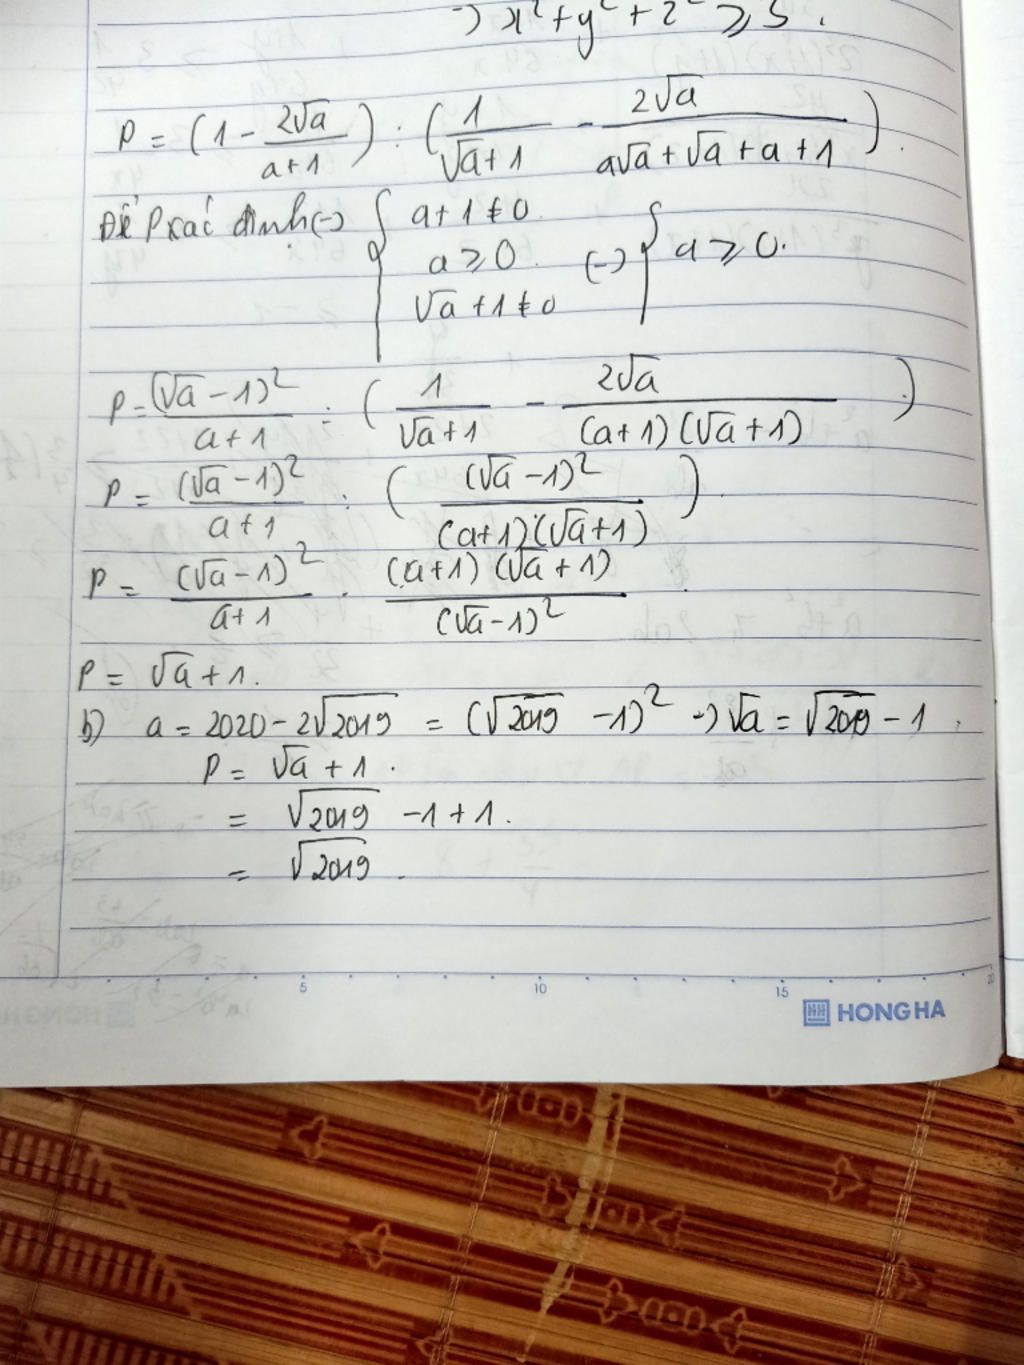 →) x² + y² + z² ≥ 3.
P = (1 - 2√a / a+1) : (1 / √a+1 - 2√a / a√a + √a + a + 1).
Để P xác định (-) { a+1 ≠ 0
a ≥ 0. (-) { a ≥ 0.
√a + 1 ≠ 0
P = (√a - 1)² / a+1 : (1 / √a+1 - 2√a / (a+1)(√a+1))
P = (√a - 1)² / a+1 : ((√a - 1)² / (a+1)(√a+1)).
P = (√a - 1)² / a+1 . (a+1)(√a+1) / (√a-1)²
P = √a + 1.
b) a = 2020 - 2√2019 = (√2019 - 1)² →) √a = √2019 - 1.
P = √a + 1.
= √2019 - 1 + 1.
= √2019.
5 10 15 20
HH HONG HA